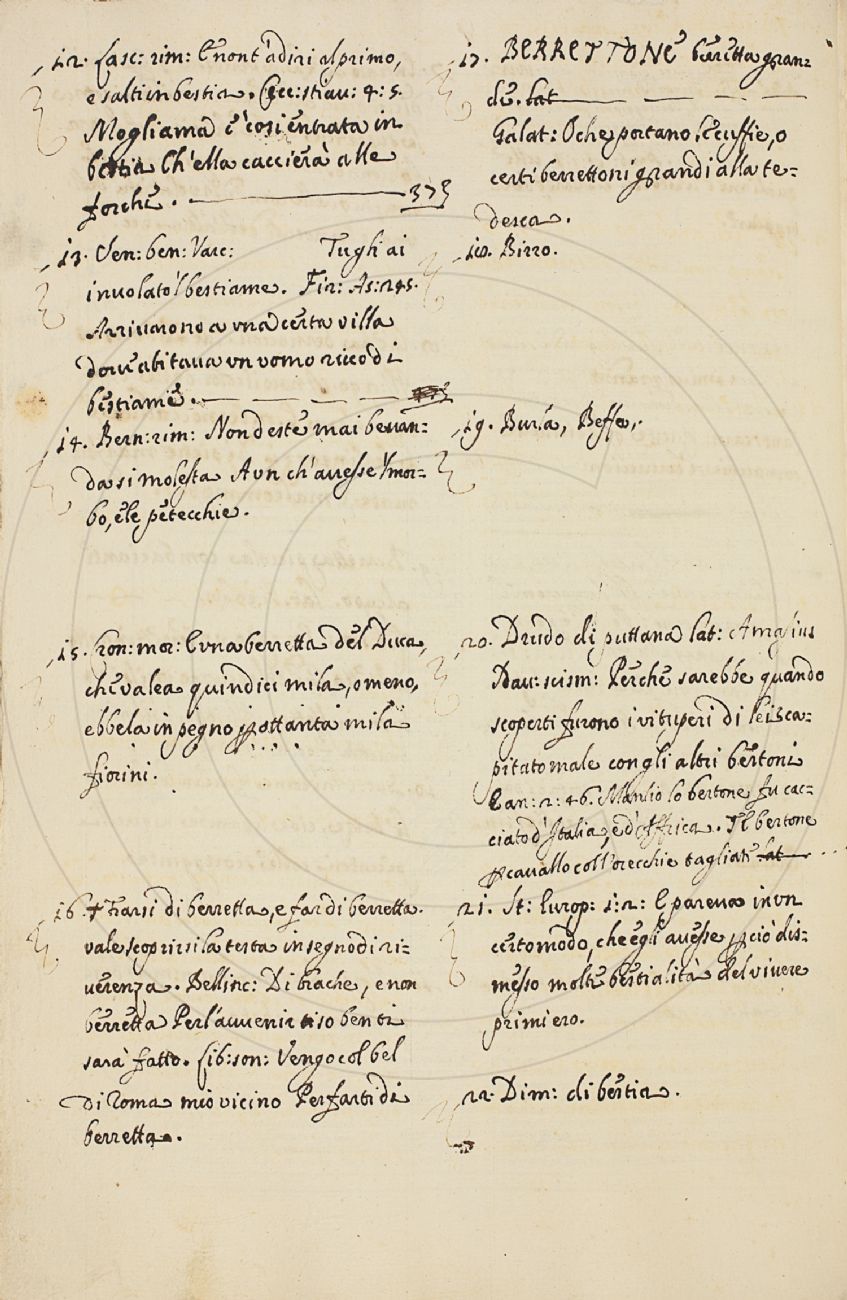 12. Lasc: rim: E non t'adiri al primo,
e salti in bestia. Cecc: stiau: 4: 5.
Mogliama è così entrata in
bestia Ch'ella caccierà alle
forche. 373
13. Sen: ben: Varc: Tu gli ai
inuolato 'l bestiame. Fir: As: 245.
Arriuarono a una certa villa
doue abitaua un uomo ricco di
bestiame.
14. Bern: rim: Non deste mai beuan=
da sì molesta A un ch'auesse 'l mor=
bo, e le petecchie.
15. Cron: mor: E una berretta del Duca,
che valea quindici mila, o meno,
ebbela in pegno p ottanta mila
fiorini.
16. + Farsi di berretta, e far di berretta.
vale scoprirsi la testa in segno di ri=
uerenza. Bellinc: Di brache, e non
berretta Per l'auuenir viso ben ti
sarà fatto. Lib: son: Vengo col bel
di Roma mio vicino Per farti di
berretta.
17. BERRETTONE berretta gran=
de. Lat
Galat: O che portano le cuffie, o
certi berrettoni grandi alla te=
desca.
18. Birro.
19. Burla, Beffe,
20. Drudo di puttana lat: Amasius
Dau: scism: Perchè sarebbe quando
scoperti furono i vituperi di lei sca=
pitato male con gli altri bertoni
Ean: 2: 46. Manlio lo bertone fu cac=
ciato d'Italia, e d'Affrica. Il bertone
p cauallo coll'orecchie tagliate lat
21. St: Europ: 1: 2: E pareua in un
certo modo, che egli auesse p ciò dis=
messo molte bestialità del viuere
primiero.
22. Dim: di bestia.